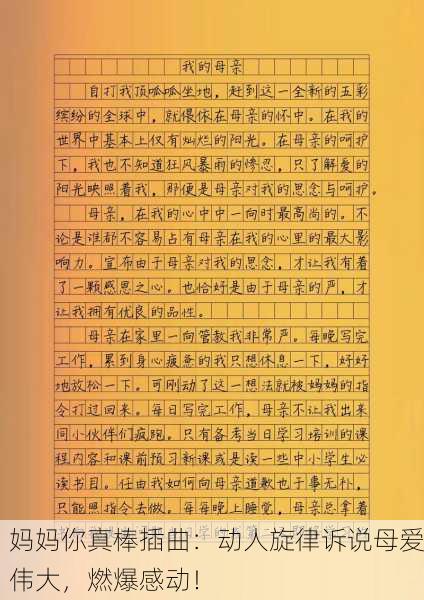 我的母亲
自打我顶呱呱坐地，赶到这一全新的五彩
缤纷的全球中，就偎依在母亲的怀中。在我的
世界中基本上仅有灿烂的阳光。在母亲的呵护
下，我也不知道狂风暴雨的惨忍，只了解爱的
阳光映照着我，那便是母亲对我的思念与呵护。
母亲，在我的心中中一向时最高尚的。不
论是谁都不容易占有母亲在我的心里的最大影
响力。宣布由于母亲对我的思念，才让我有着
了一颗感恩之心。也恰好是由于母亲的严，才
让我拥有优良的品性。
母亲在家里一向管教我非常严。每晚写完
工作，累到身心疲惫的我只想休息一下，好好
地放松一下。可刚动了这一想法就被妈妈的指
令打过回来。每日写完工作，母亲不让我出来
同小伙伴们疯跑。只有备考当日学习培训的课
程内容和课前预习新课或是读一些中小学生必
读书目。任由我如何向母亲道歉也于事无补，
只能照指令去做。每每晚上睡觉，母亲总拿着
妈妈你真棒插曲：动人旋律诉说母爱
伟大，燃爆感动！